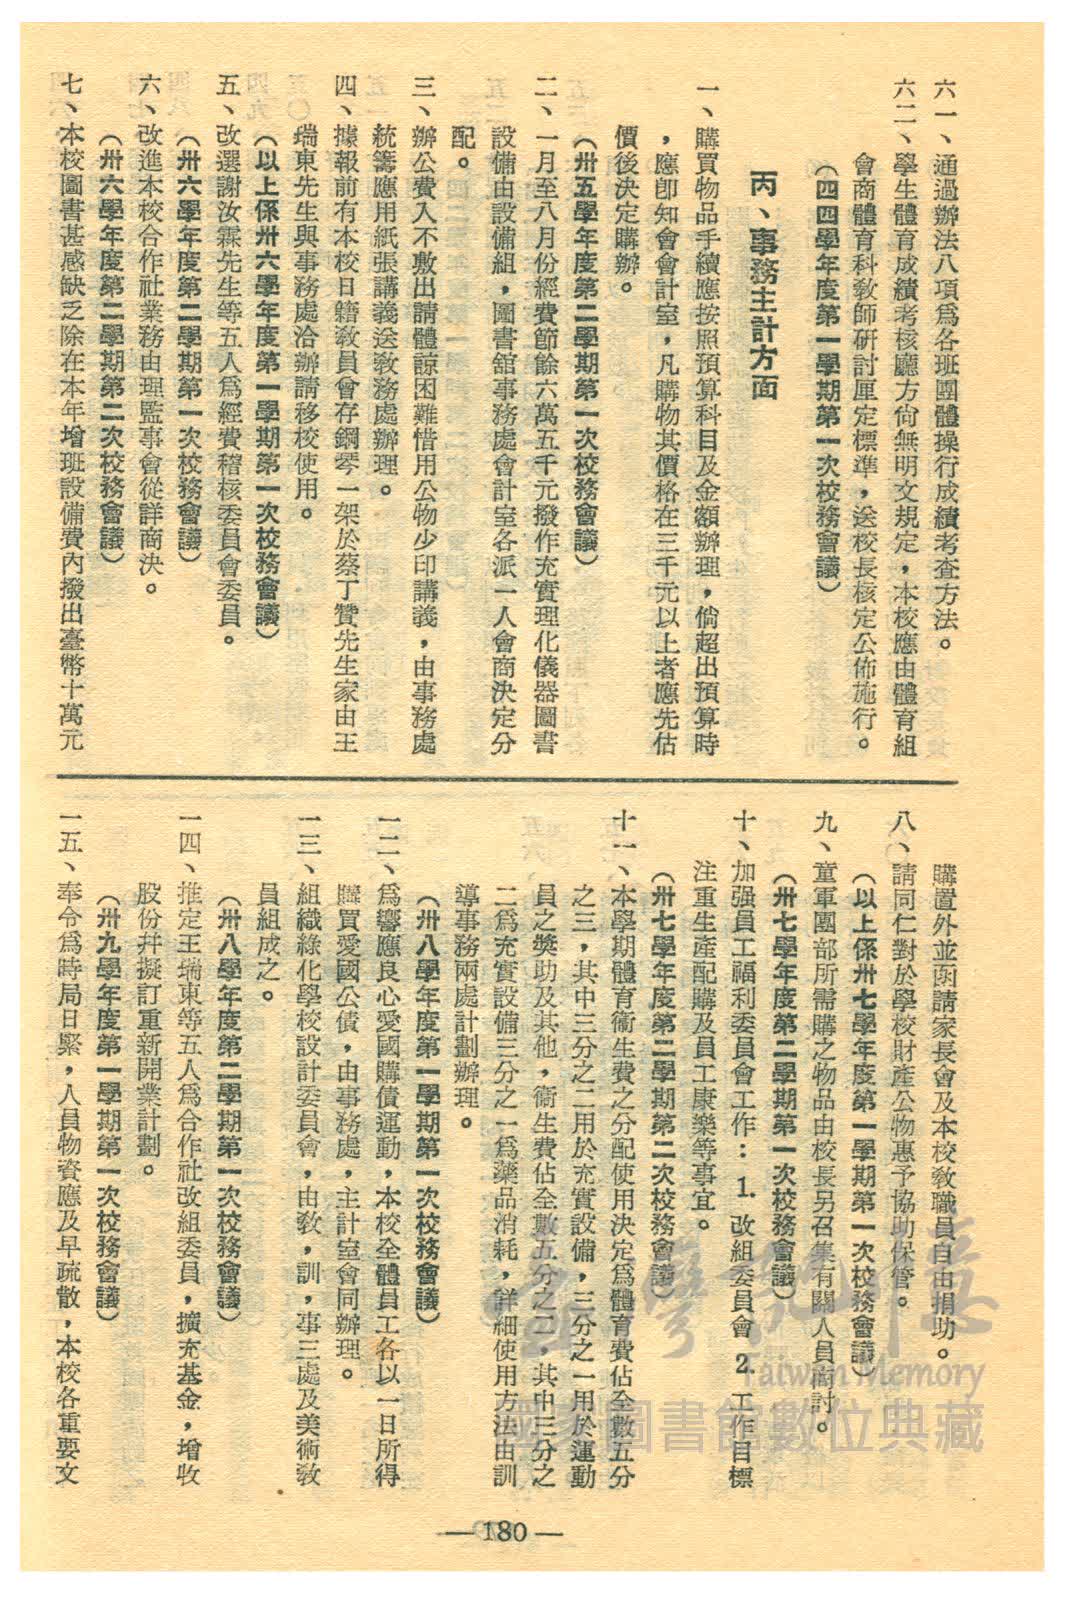 六一、通過辦法八項爲各班團體操行成績考查方法。
六二、學生體育成績考核廳方尙無明文規定，本校應由體育組
會商體育科敎師硏討厘定標準，送校長核定公佈施行。
（四四學年度第一學期第一次校務會議）
丙、事務主計方面
一、購買物品手續應按照預算科目及金額辦理，倘超出預算時
，應卽知會會計室，凡購物其價格在三千元以上者應先估
價後決定購辦。
（卅五學年度第二學期第一次校務會議）
二、一月至八月份經費節餘六萬五千元撥作充實理化儀器圖書
設備由設備組，圖書舘事務處會計室各派一人會商決定分
配。
三、辦公費入不敷出請體諒困難惜用公物少印講義，由事務處
統籌應用紙張講義送敎務處辦理。
四、據報前有本校日籍敎員會存鋼琴一架於蔡丁贊先生家由王
瑞東先生與事務處洽辦請移校使用。
（以上係卅六學年度第一學期第一次校務會議）
五、改選謝汝霖先生等五人爲經費稽核委員會委員。
（卅六學年度第二學期第一次校務會議）
六、改進本校合作社業務由理監事會從詳商決。
（卅六學年度第二學期第二次校務會議）
七、本校圖書甚感缺乏除在本年增班設備費內撥出臺幣十萬元
購置外並函請家長會及本校敎職員自由捐助。
八、請同仁對於學校財產公物惠予協助保管。
（以上係卅七學年度第一學期第一次校務會議）
九、童軍團部所需購之物品由校長另召集有關人員商討。
（卅七學年度第二學期第一次校務會議）
十、加强員工福利委員會工作：1. 改組委員會 2. 工作目標
注重生產配購及員工康樂等事宜。
（卅七學年度第二學期第二次校務會議）
十一、本學期體育衞生費之分配使用決定爲體育費佔全數五分
之三，其中三分之二用於充實設備，三分之一用於運動
員之獎助及其他，衞生費佔全數五分之二，其中三分之
二爲充實設備三分之一爲藥品消耗，詳細使用方法由訓
導事務兩處計劃辦理。
（卅八學年度第一學期第一次校務會議）
一二、爲響應良心愛國購債運動，本校全體員工各以一日所得
購買愛國公債，由事務處，主計室會同辦理。
一三、組織綠化學校設計委員會，由敎，訓，事三處及美術敎
員組成之。
（卅八學年度第二學期第一次校務會議）
一四、推定王瑞東等五人爲合作社改組委員，擴充基金，增收
股份幷擬訂重新開業計劃。
（卅九學年度第一學期第一次校務會議）
一五、奉令爲時局日緊，人員物資應及早疏散，本校各重要文
—180—
臺灣記憶
Taiwan Memory
國家圖書館數位典藏